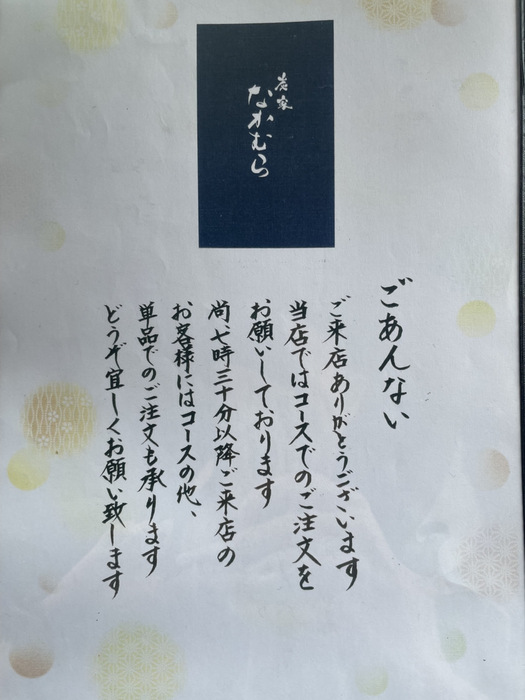 炭家
なかむら
ごあんない
ご来店ありがとうございます
当店ではコースでのご注文を
お願いしております
尚、七時三十分以降ご来店の
お客様にはコースの他、
単品でのご注文も承ります
どうぞ宜しくお願い致します